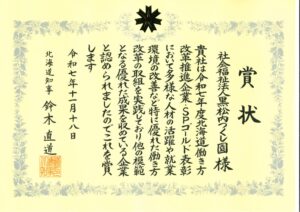 賞状
社会福祉法人黒松内つくし園様
貴社は令和七年度北海道働き方
改革推進企業・SPゴールド表彰
において多様な人材の活躍や就業
環境の改善など特に優れた働き方
改革の取組を実践しており他の模範
となる優れた成果を収めている企業
と認められましたのでこれを賞
します
令和七年十一月十八日
北海道知事 鈴木直道